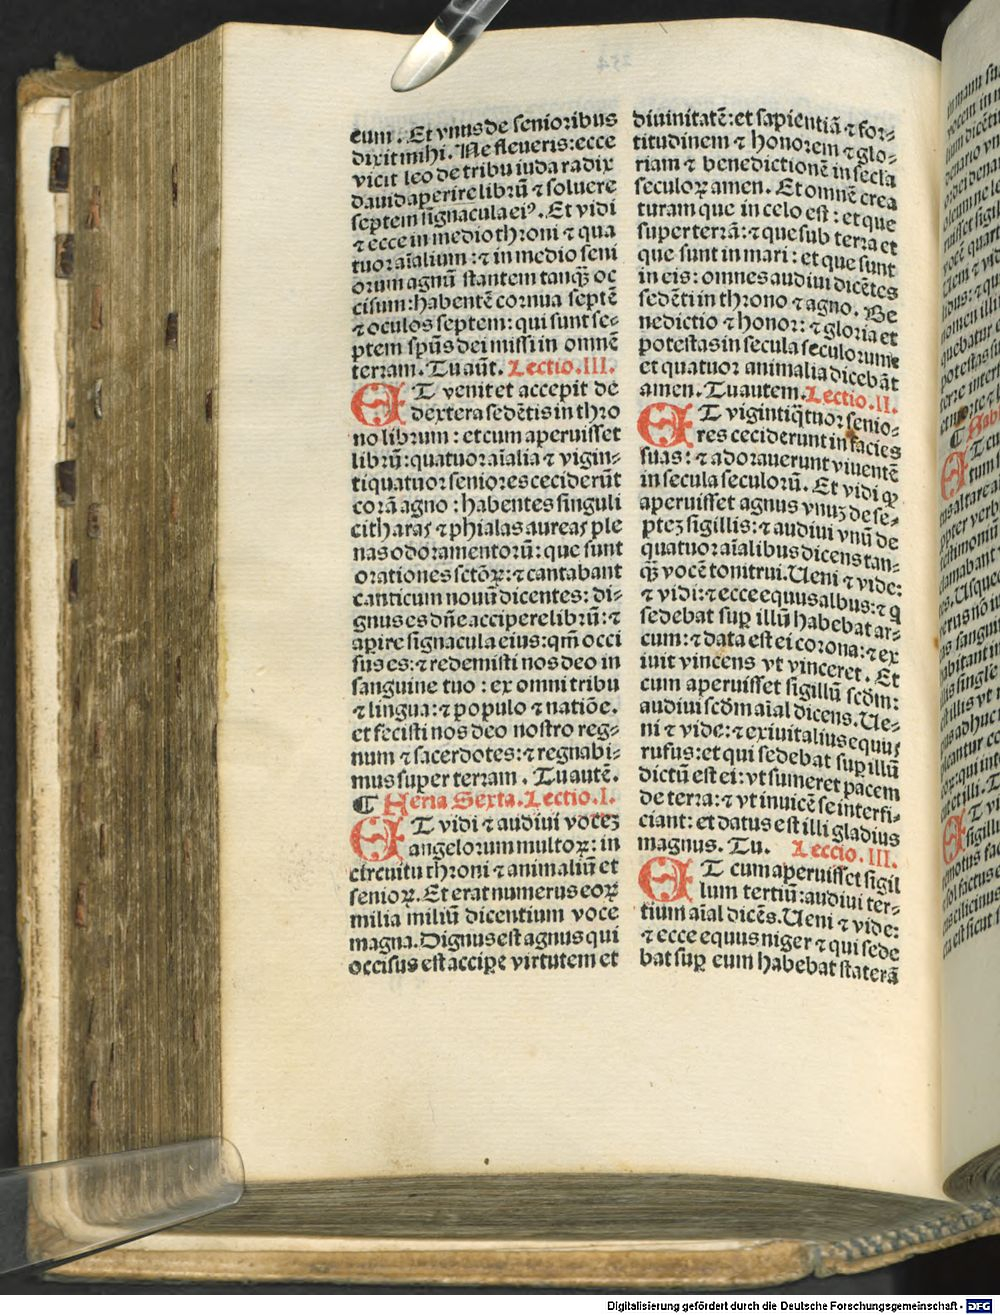 eum. Et vnus de senioribus
dixit mihi. Ne fleueris: ecce
vicit leo de tribu iuda radix
dauid aperire librū ⁊ soluere
septem signacula eiꝰ. Et vidi
⁊ ecce in medio throni ⁊ qua
tuor aīalium: ⁊ in medio seni
orum agnū stantem tanqȝ oc
cisum: habentē cornua septē
⁊ oculos septem: qui sunt se-
ptem spūs dei missi in omnē
terram. Tu aūt. Lectio. III.
ET venit et accepit de
dextera sedētis in thro
no librum: et cum aperuisset
librū: quatuor aīalia ⁊ vigin-
tiquatuor seniores ceciderūt
corā agno: habentes singuli
citharas ⁊ phialas aureas ple
nas odoramentorū: que sunt
orationes sctōꝝ: ⁊ cantabant
canticum nouū dicentes: di-
gnus es dn̄e accipere librū: ⁊
aꝑire signacula eius: qm̄ occi
sus es: ⁊ redemisti nos deo in
sanguine tuo: ex omni tribu
⁊ lingua: ⁊ populo ⁊ natiōe.
et fecisti nos deo nostro reg-
num ⁊ sacerdotes: ⁊ regnabi-
mus super terram. Tu autē.
¶ Feria Sexta. Lectio. I.
ET vidi ⁊ audiui voceȝ
angelorum multoꝝ: in
circuitu throni ⁊ animaliū et
senioꝝ. Et erat numerus eoꝝ
milia miliū dicentium voce
magna. Dignus est agnus qui
occisus est acciꝑe virtutem et
diuinitatē: et sapientiā ⁊ for-
titudinem ⁊ honorem ⁊ glo-
riam ⁊ benedictionē in secla
seculoꝝ amen. Et omnē crea
turam que in celo est: et que
super terrā: ⁊ que sub terra et
que sunt in mari: et que sunt
in eis: omnes audiui dicētes
sedēti in throno ⁊ agno. Be
nedictio ⁊ honor: ⁊ gloria et
potestas in secula seculorum
et quatuor animalia dicebāt
amen. Tu autem. Lectio. II.
ET vigintiq̄tuor senio-
res ceciderunt in facies
suas: ⁊ adorauerunt viuentē
in secula seculorū. Et vidi ꝙ
aperuisset agnus vnuȝ de se-
pteȝ sigillis: ⁊ audiui vnū de
quatuor aīalibus dicens tan-
qȝ vocē tonitrui. Ueni ⁊ vide:
⁊ vidi: ⁊ ecce equus albus: ⁊ q
sedebat suꝑ illū habebat ar-
cum: ⁊ data est ei corona: ⁊ ex
iuit vincens vt vinceret. Et
cum aperuisset sigillū scdm̄:
audiui scdm̄ aīal dicens. Ue-
ni ⁊ vide: ⁊ exiuit alius equus
rufus: et qui sedebat suꝑ illū
dictū est ei: vt sumeret pacem
de terra: ⁊ vt inuicē se interfi-
ciant: et datus est illi gladius
magnus. Tu. Leccio. III.
ET cum aperuisset sigil
lum tertiū: audiui ter-
tium aīal dicēs. Ueni ⁊ vide:
⁊ ecce equus niger ⁊ qui sede
bat suꝑ eum habebat staterā
Digitalisierung gefördert durch die Deutsche Forschungsgemeinschaft - DFG